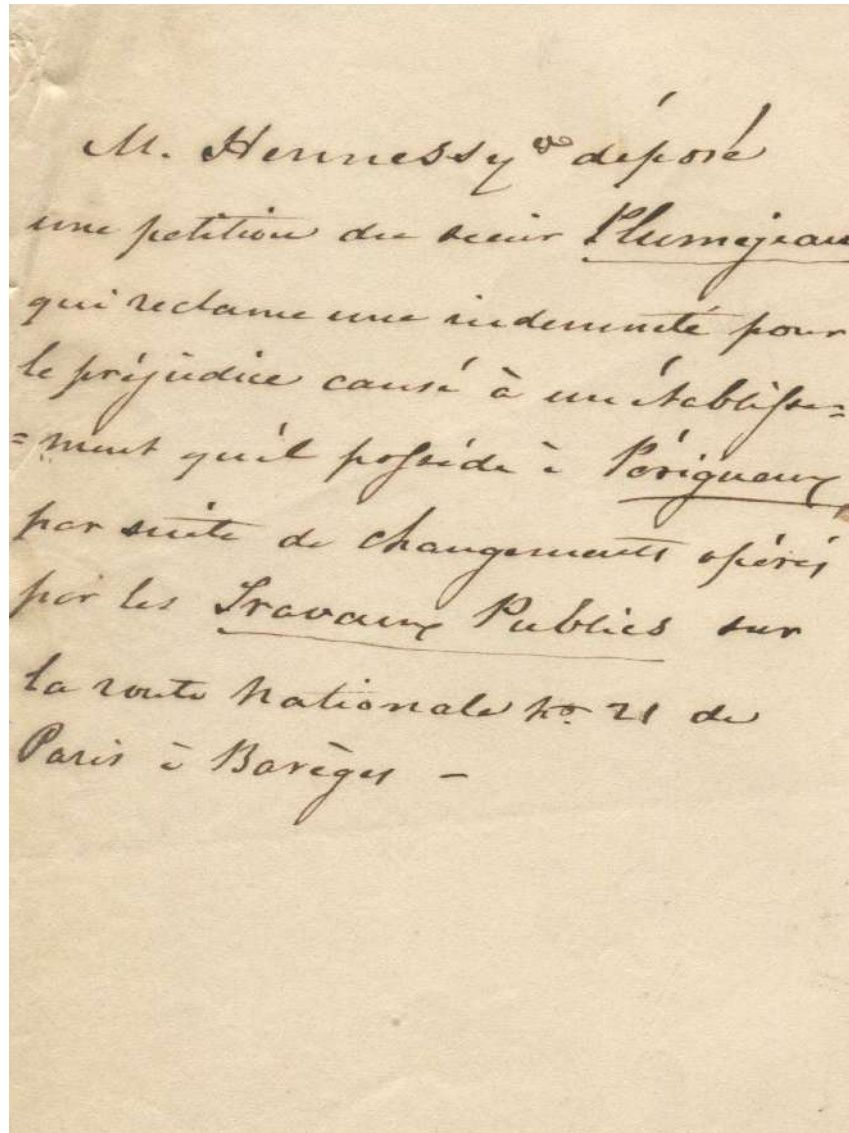 M. Hennessy a déposé
une petition du sieur Plumejeau
qui reclame une indemnité pour
le préjudice causé à un établisse=
=ment qu'il posséde à Périgueux
par suite de changements opérés
par les Travaux Publics sur
la route Nationale No. 21 de
Paris à Barèges -